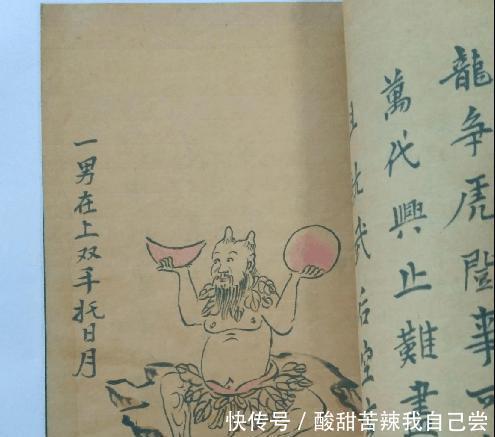 龍争虎事
萬代興止難書
武后空
一男在上双手托日月
快传号 / 酸甜苦辣我自己尝